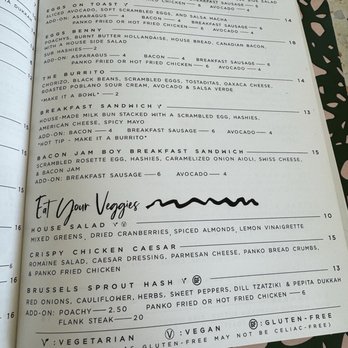 EGGS ON TOAST
SLICED AVOCADO, SOFT SCRAMBLED EGGS, AND SALSA MACHA
ADD-ON: ASPARAGUS — 4 BACON — 4 BREAKFAST SAUSAGE — 6
PANKO FRIED OR HOT FRIED CHICKEN — 6 AVOCADO — 4
14
EGGS BENNY
POACHYS, BURNT BUTTER HOLLANDAISE, HOUSE BREAD, CANADIAN BACON,
WITH A HOUSE SIDE SALAD
SUB HASHIES — 2
ADD-ON: ASPARAGUS — 4 BACON — 4 BREAKFAST SAUSAGE — 6
PANKO FRIED OR HOT FRIED CHICKEN — 6 AVOCADO — 4
THE BURRITO
CHORIZO, BLACK BEANS, SCRAMBLED EGGS, TOSTADITAS, OAXACA CHEESE,
ROASTED POBLANO SOUR CREAM, AVOCADO & SALSA VERDE
"MAKE IT A BOWL" — 2
BREAKFAST SANDWICH
HOUSE-MADE MILK BUN STACKED WITH A SCRAMBLED EGG, HASHIES,
AMERICAN CHEESE, SPICY MAYO
ADD-ON: BACON — 4 BREAKFAST SAUSAGE — 6 AVOCADO — 4
"HOT TIP - MAKE IT A BURRITO"
BACON JAM BOY BREAKFAST SANDWICH
SCRAMBLED ROSETTE EGG, HASHIES, CARAMELIZED ONION AIOLI, SWISS CHEESE,
& BACON JAM
ADD-ON: BREAKFAST SAUSAGE — 6 AVOCADO — 4
Eat Your Veggies
HOUSE SALAD V V 10
MIXED GREENS, DRIED CRANBERRIES, SPICED ALMONDS, LEMON VINAIGRETTE
CRISPY CHICKEN CAESAR 15
ROMAINE SALAD, CAESAR DRESSING, PARMESAN CHEESE, PANKO BREAD CRUMBS,
& PANKO FRIED CHICKEN
BRUSSELS SPROUT HASH V 13
RED ONIONS, CAULIFLOWER, HERBS, SWEET PEPPERS, DILL TZATZIKI & PEPITA DUKKAH
ADD-ON: POACHY — 2.50 PANKO FRIED OR HOT FRIED CHICKEN — 6
FLANK STEAK — 20
V :VEGETARIAN V :VEGAN :GLUTEN-FREE
GLUTEN-FREE MAY NOT BE CELIAC-FREE)